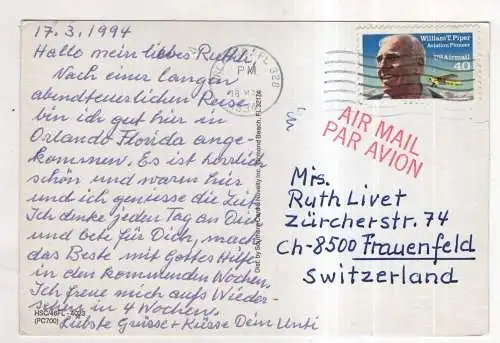 17.3.1994
Hallo mein liebes Ruthli.
Nach einer langen
abendteuerlichen Reise
bin ich gut hier in
Orlando Florida ange-
kommen. Es ist herrlich
schön und warm hier
und ich geniesse die Zeit.
Ich denke jeden Tag an Dich
und bete für Dich, mach
das Beste mit Gottes Hilfe
in den kommenden Wochen.
Ich freue mich aufs Wieder-
sehen in 4 Wochen.
Liebste Grüsse + Küsse Dein
HSC/46FL - 4023
(PC700)
FL 328
PM
William T. Piper
Aviation Pioneer
US Airmail
40
AIR MAIL
PAR AVION
Mrs.
Ruth Livet
Zürcherstr. 74
CH-8500 Frauenfeld
Switzerland